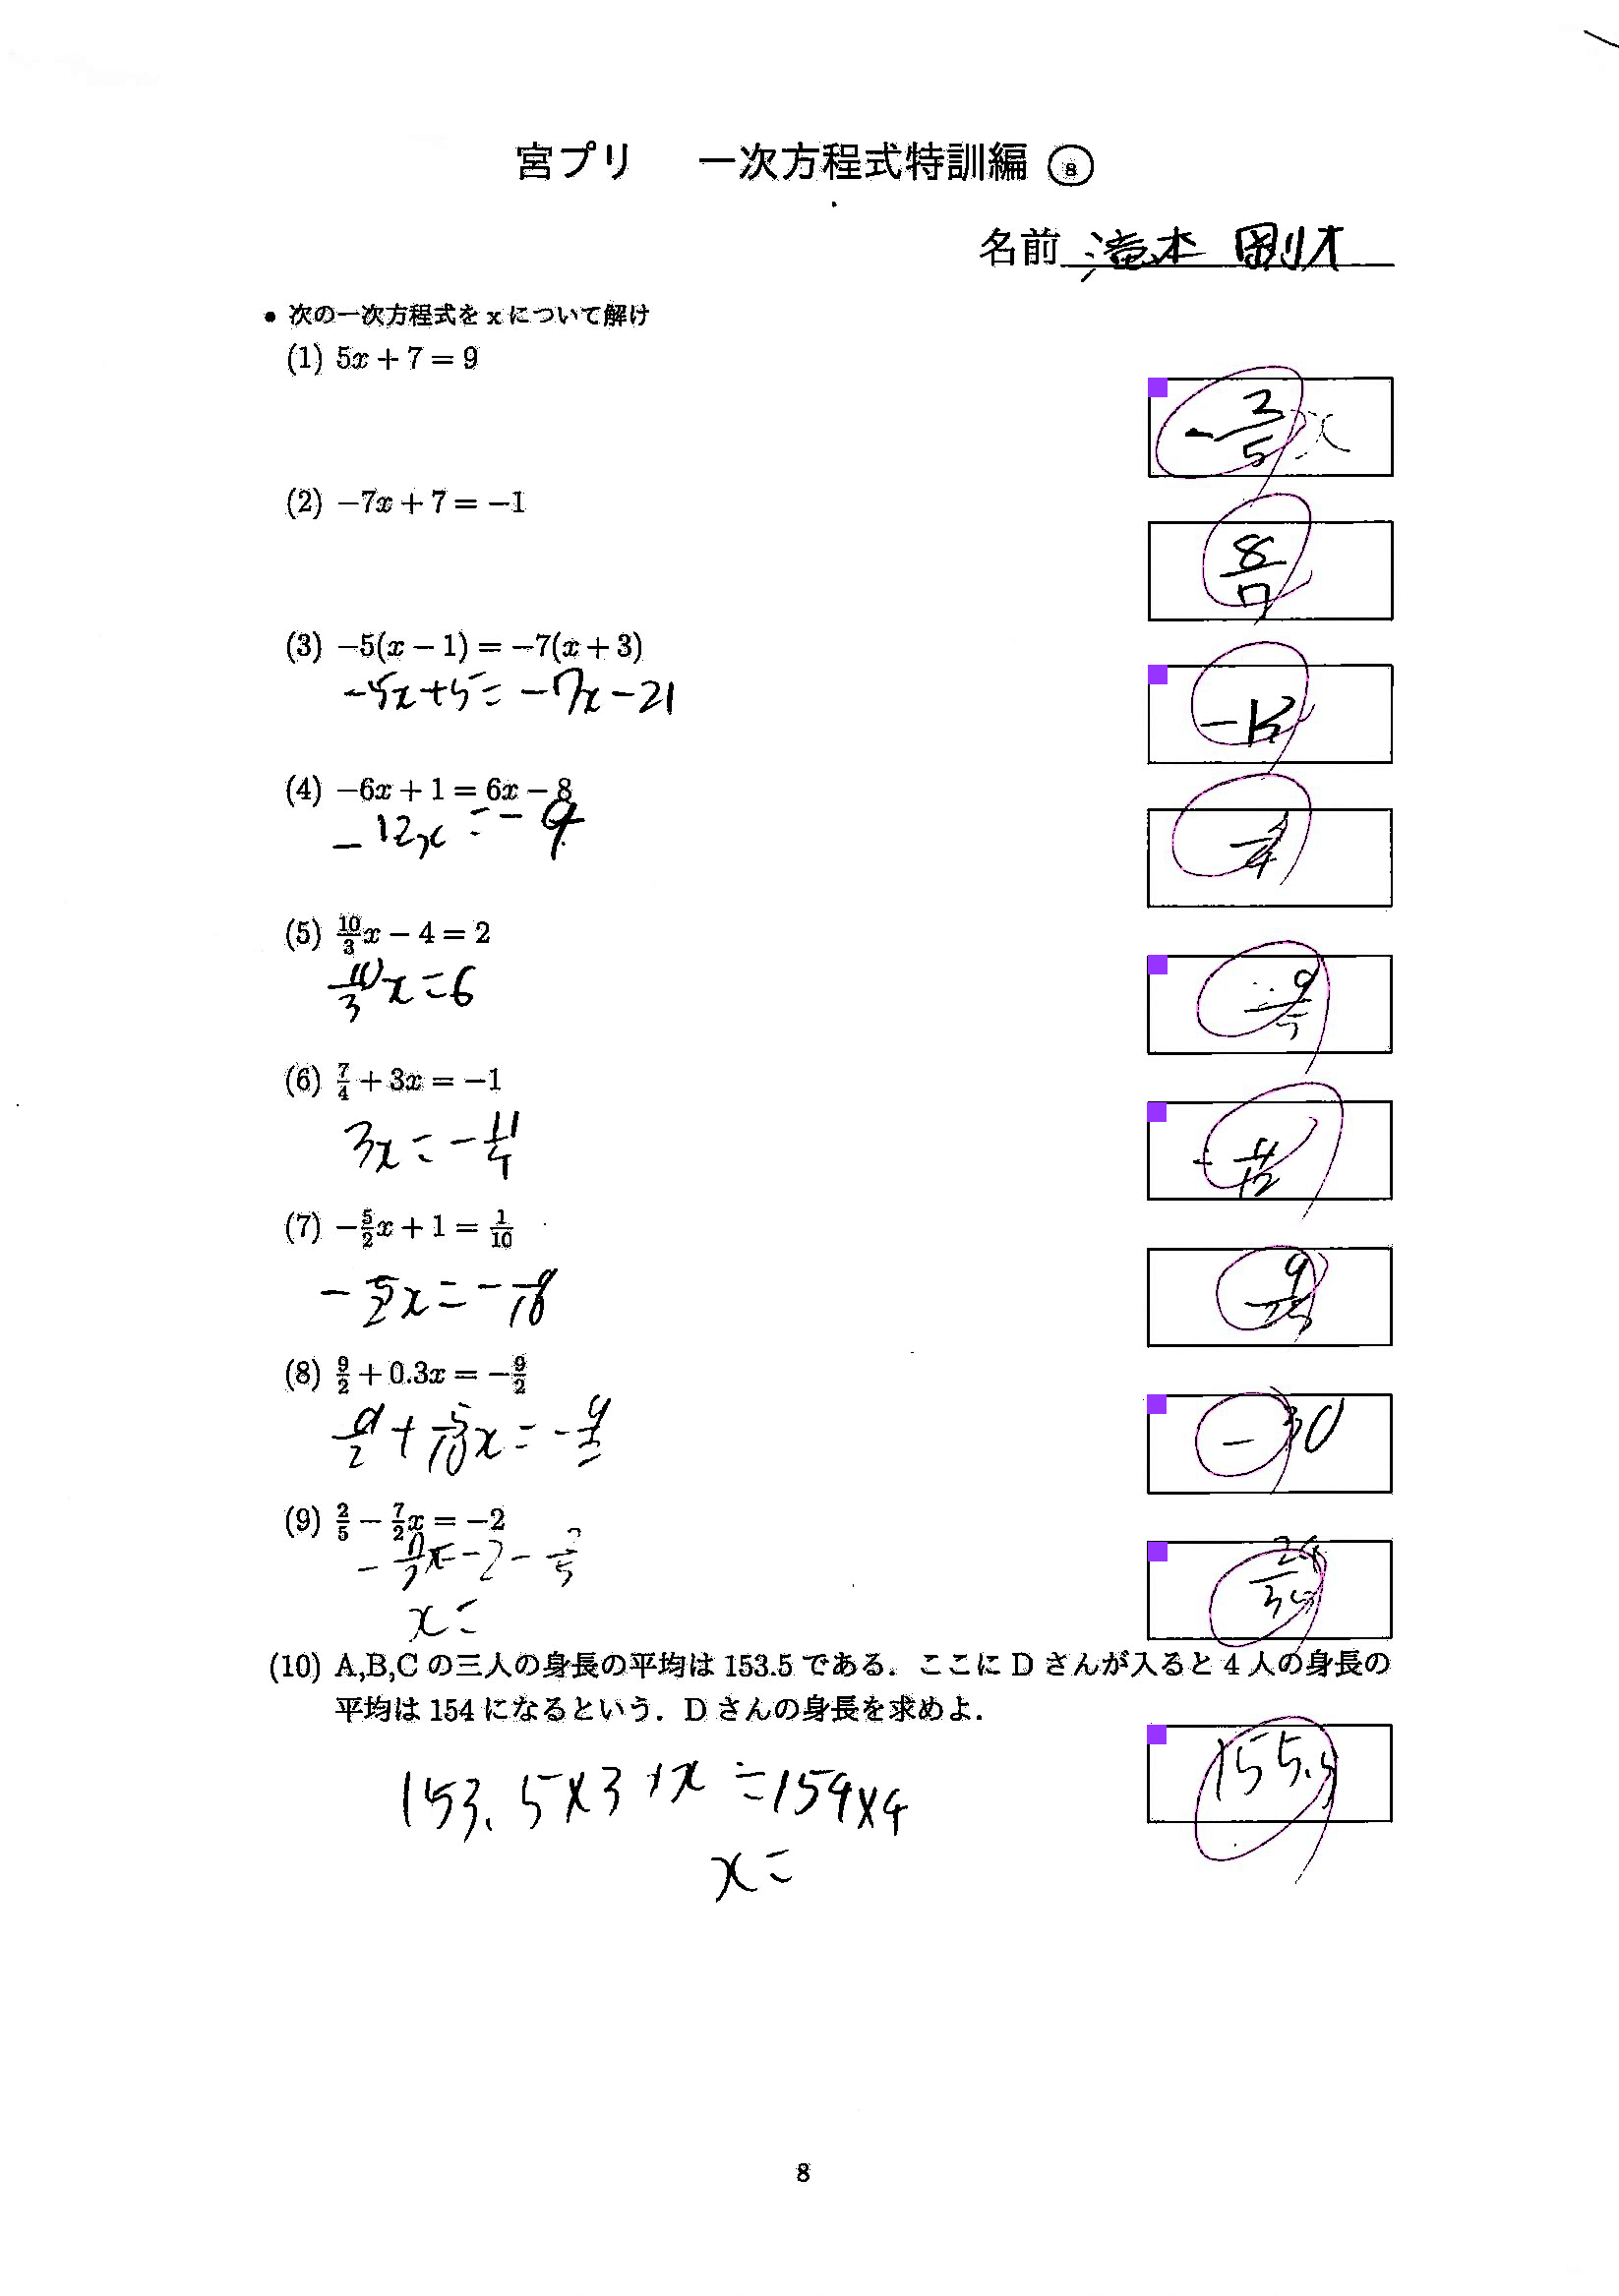 宮プリ 一次方程式特訓編 ⑧
名前 滝本 剛才
• 次の一次方程式を x について解け
(1) 5x + 7 = 9
(2) −7x + 7 = −1
8/7
(3) −5(x − 1) = −7(x + 3)
-5x+5=-7x-21
(4) −6x + 1 = 6x − 8
-12x=-9
(5) 10/3x − 4 = 2
10/3x=6
(6) 7/4 + 3x = −1
3x=-11/4
-11/12
(7) −5/2x + 1 = 1/10
-5/2x=-9/10
9/25
(8) 9/2 + 0.3x = −9/2
-30
(9) 2/5 − 7/2x = −2
x=
24/35
(10) A,B,C の三人の身長の平均は 153.5 である．ここに D さんが入ると 4 人の身長の
平均は 154 になるという．D さんの身長を求めよ．
155.5
153.5×3+x=154×4
x=
8